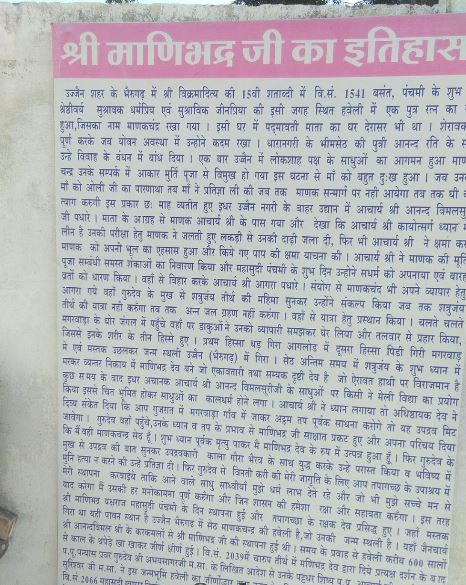 श्री माणिभद्र जी का इतिहास
उज्जैन शहर के भैरूगढ़ में श्री विक्रमादित्य की 15वी शताब्दी में वि.सं. 1541 बसंत, पंचमी के शुभ
श्रेष्ठीवर्य सुश्रावक धर्मप्रिय एवं सुश्राविक जीनप्रिया की इसी जगह स्थित हवेली में एक पुत्र रत्न का
हुआ,जिसका नाम माणकचंद्र रखा गया । इसी घर में पद्मावती माता का घर देरासर भी था । शेरावक
पूर्ण करके जब योवन अवस्था में उन्होंने कदम रखा । धारानगरी के भीमसेठ की पुत्री आनन्द रति के स
उन्हे विवाह के वंधन में बांध दिया । एक बार उज्जैन में लोकशाह पक्ष के साधुओं का आगमन हुआ माण
चन्द्र उनके सम्पर्क में आकर मुर्ति पूजा से विमुख हो गया इस घटना से मां को बहुत दुःख हुआ । जब उन
मां को ओली जी का पारणाथा तब माँ ने प्रतिज्ञा ली की जब तक माणक सन्मार्ग पर नही आयेगा तब तक घी
त्याग करुगी इस प्रकार छः माह व्यतीत हुए इधर उज्जैन नगरी के बाहर उद्यान में आचार्य श्री आनन्द विमलसु
जी पधारे । माता के आग्रह से माणक आचार्य श्री के पास गया और देखा कि आचार्य श्री कायोत्सर्ग ध्यान
लीन है उनकी परीक्षा हेतु माणक ने जलती हुए लकड़ी से उनकी दाढ़ी जला दी, फिर भी आचार्य श्री ने क्षमा कर
माणक को अपनी भूल का एहसास हुआ और किये गए पाप की क्षमा याचना की । आचार्य श्री ने माणक की मूर्ति
पूजा सम्बंधी समस्त शंकाओं का निवारण किया और महासुदी पंचमी के शुभ दिन उन्होने सधर्म को अपनाया एवं बारह
व्रतों को धारण किया । वहाँ से विहार करके आचार्य श्री आगरा पधारे । संयोग से माणकचंद भी अपने व्यापार हेतु
आगरा गये वहाँ गुरुदेव के मुख से शत्रुंजय तीर्थ की महिमा सुनकर उन्होंने संकल्प किया जब तक शत्रुंजय
तीर्थ की यात्रा नहीं करुंगा तब तक अन्न जल ग्रहण नहीं करुंगा । वहाँ से यात्रा हेतु प्रस्थान किया । चलते चलते
मगरवाड़ा के घोर जंगल में पहुँचे वहाँ पर डाकुओं ने उनको व्यापारी समझकर घेर लिया और तलवार से प्रहार किया,
जिससे उनके शरीर के तीन हिस्से हुए । प्रथम हिस्सा धड़ गिरा आगलोड में दूसरा हिस्सा पिंडी गिरी मगरवाड़
में एवं मस्तक उछलकर जन्म स्थली उज्जैन (भैरुगढ़) में गिरा । सेठ अन्तिम समय में शत्रुंजय के शुभ ध्यान में
मरकर व्यन्तर निकाय में माणिभद्र देव बने जो एकावतारी तथा सम्यक दृष्टी देव है जो ऐरावत हाथी पर विराजमान है
कुछ समय के वाद इधर अचानक आचार्य श्री आनन्द विमलसुरीजी के साधुओं पर किसी ने मैली विद्या का प्रयोग
किया इससे चित भूमित होकर साधुओं का कालधर्म होने लगा । आचार्य श्री ने ध्यान लगाया तो अधिष्ठायक देव ने
दिव्य संकेत दिया कि आप गुजरात में मगरवाड़ा गाँव में जाकर अट्ठम तप पूर्वक साधना करोगे तो यह उपद्रव मिट
जावेगा । गुरुदेव वहाँ पहुँचे,उनके ध्यान व तप के प्रभाव से माणिभद्र जी साक्षात प्रकट हुए और अपना परिचय दिया
कि मैं वही माणकचन्द्र सेठ हूँ । शुभ ध्यान पूर्वक मृत्यु पाकर मैं माणिभद्र देव के रुप में उत्पन्न हुआ हूँ । फिर गुरुदेव के
मुख से उपद्रव की बात सुनकर उपद्रवकारी काला गोरा भैरव के साथ युद्ध करके उन्हे परास्त किया व भविष्य में
मुनि हत्या न करने की उन्हे प्रतिज्ञा दी । फिर गुरुदेव से विनती करी की मेरी जागृति के लिए आप तपागच्छ के उपाश्रय में
मेरी स्थापना करवाईये ताकि आने वाले साधु साध्वीयाँ मुझे धर्म लाभ देते रहे और जो भी मुझे सच्चे मन से
याद करेगा मैं उसकी हर मनोकामना पूर्ण करुंगा और जिन शासन की हमेशा रक्षा और सहायता करुंगा । इस तरह
श्री माणिभद्र यक्षराज महासुदी पंचमी के दिन स्थापना हुई और तपागच्छा के रक्षक देव प्रसिद्ध हुए । जहाँ मस्तक
गिरा था यही पावन स्थान है उज्जैन भैरुगढ़ में सेठ माणकचन्द्र की हवेली है,जो उनकी जन्म स्थली है । वहाँ जैनचार्य
श्री आनन्दविमल श्री के करकमलों से श्री माणिभद्र जी की स्थापना हुई थी । समय के प्रवाह से हवेली करीब 600 सालों
से काल के थपेड़े खा खाकर जीर्ण शीर्ण हुई । वि.सं. 2039में
वि.सं. 2066 महासुदी